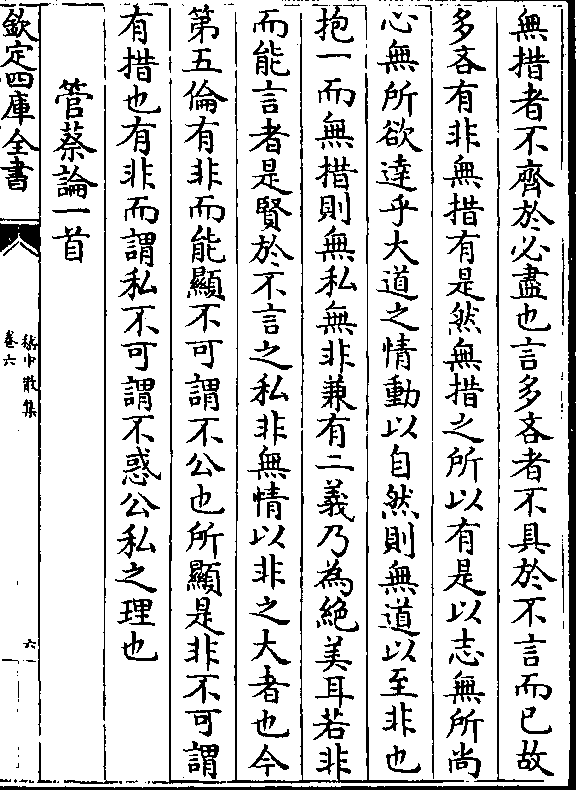 無措者不齊於必盡也言多吝者不具於不言而已故
多吝有非無措有是然無措之所以有是以志無所尚
心無所欲達乎大道之情動以自然則無道以至非也
抱一而無措則無私無非兼有二義乃為絶美耳若非
而能言者是賢於不言之私非無情以非之大者也今
第五倫有非而能顯不可謂不公也所顯是非不可謂
有措也有非而謂私不可謂不惑公私之理也
管蔡論一首
欽定四庫全書
嵇中散集
卷六
六